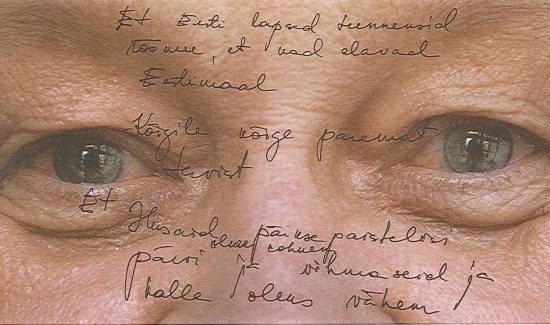 Et Eesti lapsed tunneksid
rõõmu, et nad elavad
Eestimaal
Kõigile kõige paremat
tervist
Et
ilusaid päikesepaistelisi
päevi oleks rohkem
ja vihmaseid ja
halle oleks vähem